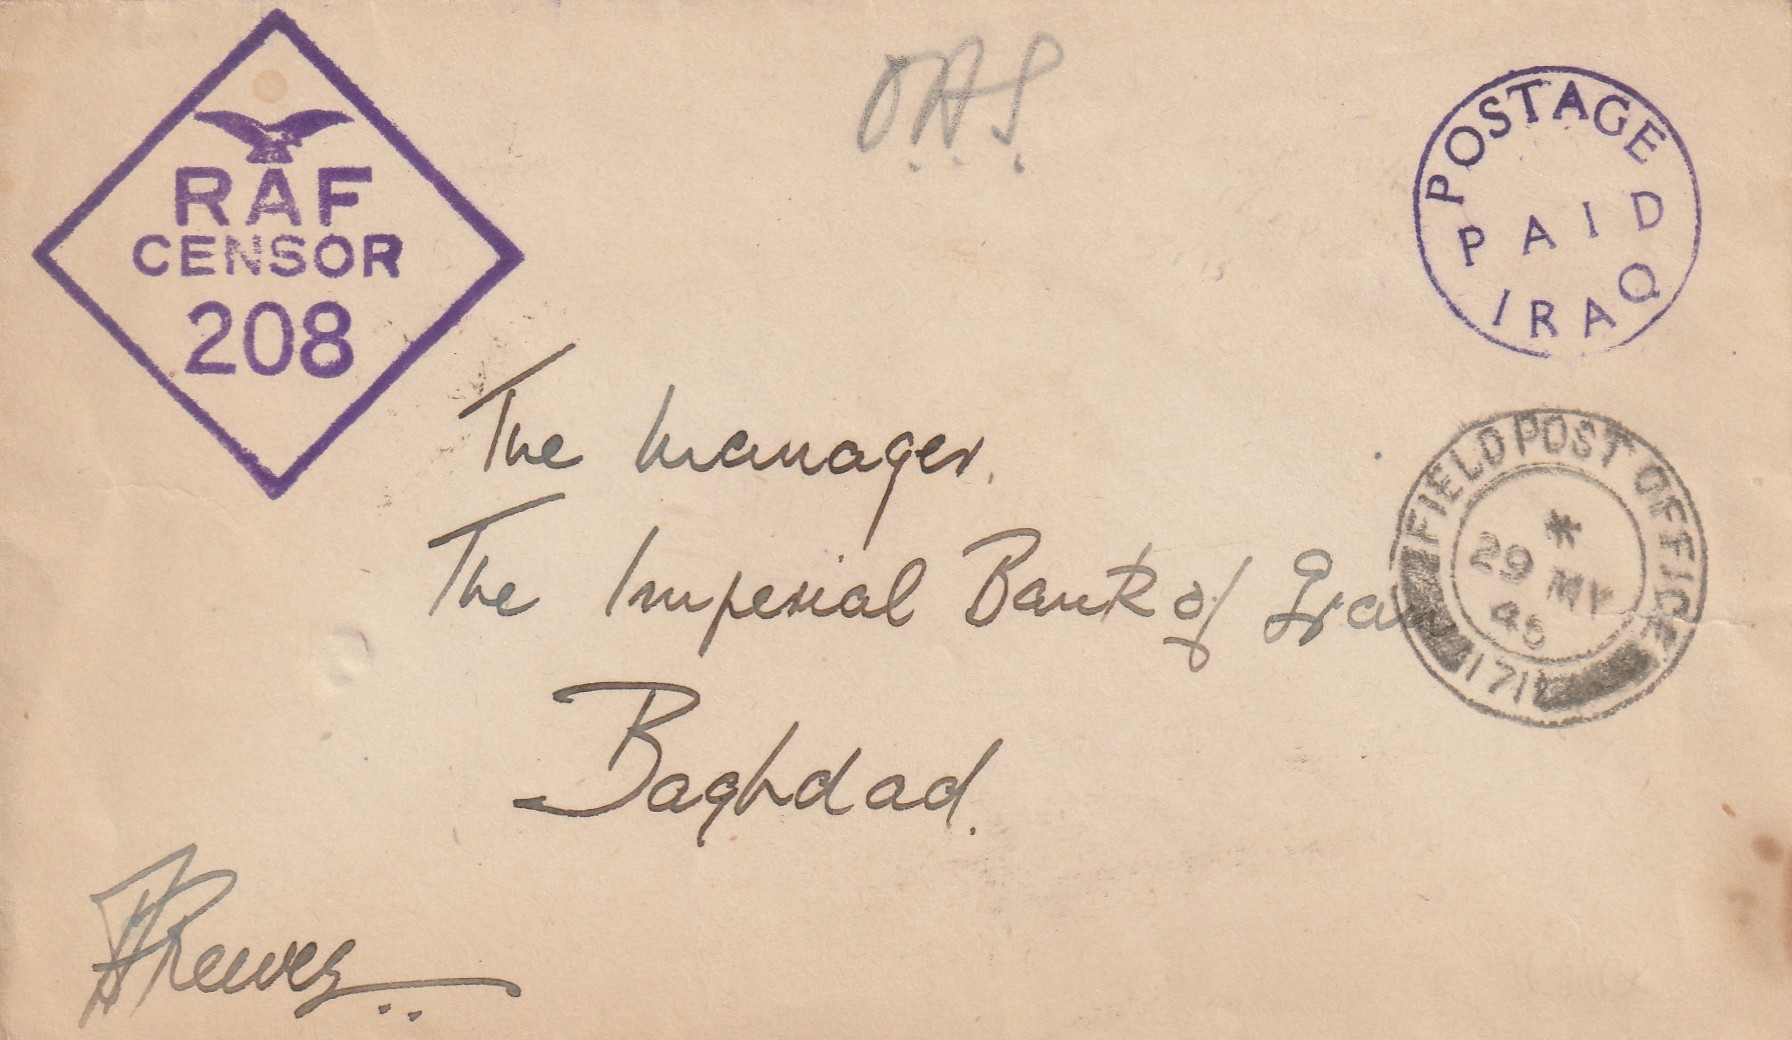 RAF
CENSOR
208
O.A.S.
POSTAGE
PAID
IRAQ
The Manager.
The Imperial Bank of Iran
Baghdad.
FIELD POST OFFICE
*
29 MY
45
171
Reeves